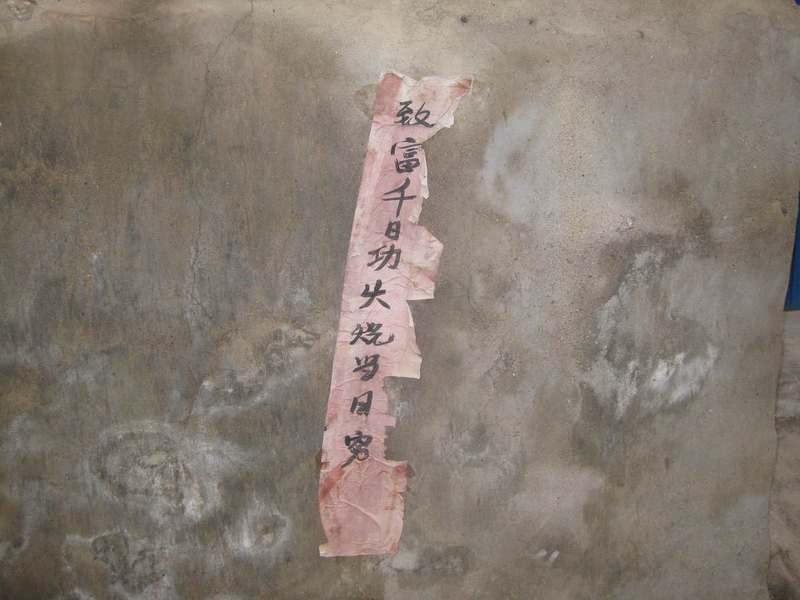 致富千日功火烧当日穷